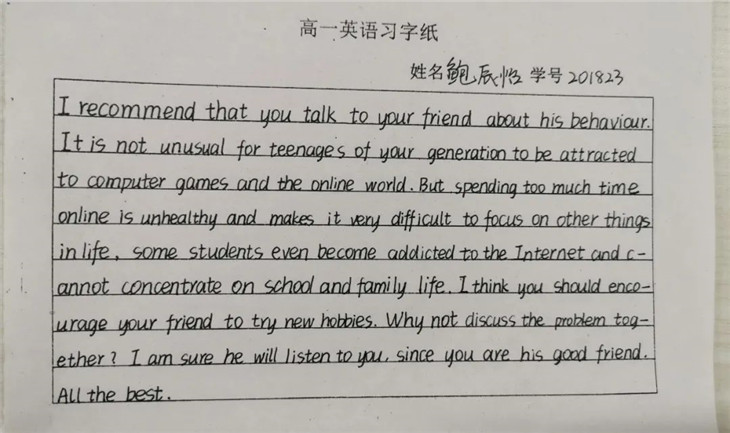 高一英语习字纸
姓名 鲍辰怡 学号 201823
I recommend that you talk to your friend about his behaviour.
It is not unusual for teenages of your generation to be attracted
to computer games and the online world. But spending too much time
online is unhealthy and makes it very difficult to focus on other things
in life, some students even become addicted to the Internet and c-
annot concentrate on school and family life. I think you should enco-
urage your friend to try new hobbies. Why not discuss the problem tog-
ether? I am sure he will listen to you, since you are his good friend.
All the best.